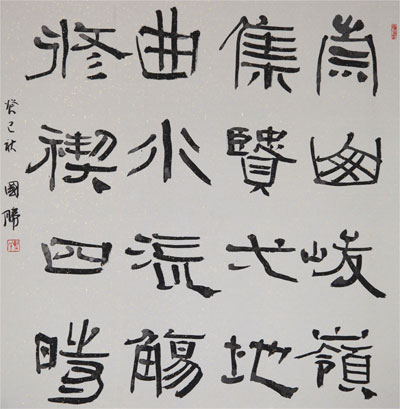 崇峻嶺
集賢之地
曲水流觴
修禊四時
癸巳秋 國勝